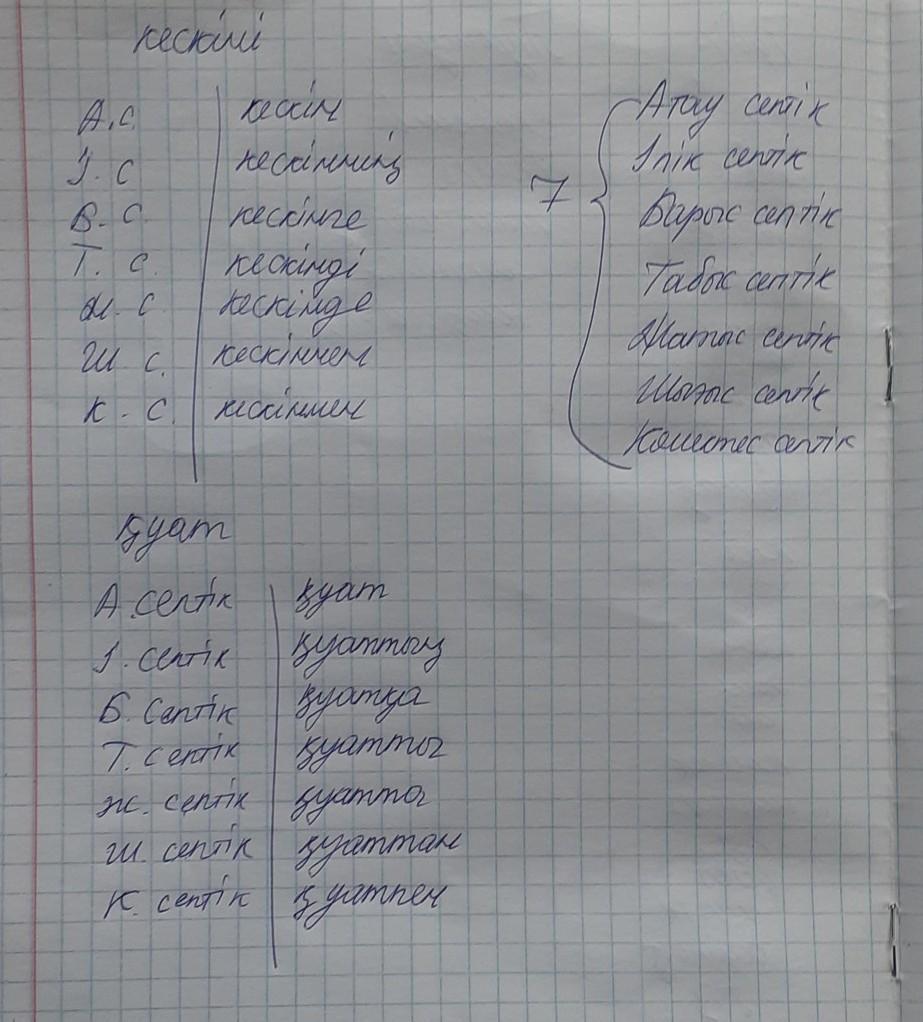 кескіні
А.С. кескін
І. С кескіннің
Б. С. кескінге
Т. С. кескінді
Ж. С кескінде
Ш С. кескіннен
К. С. кескінмен
7
Атау септік
Ілік септік
Барыс септік
Табыс септік
Жатыс септік
Шығыс септік
Көмектес септік
Қуат
А. септік қуат
І. септік қуаттың
Б. септік қуатқа
Т. септік қуатты
Ж. септік
Ш септік қуаттан
К. септік қуатпен